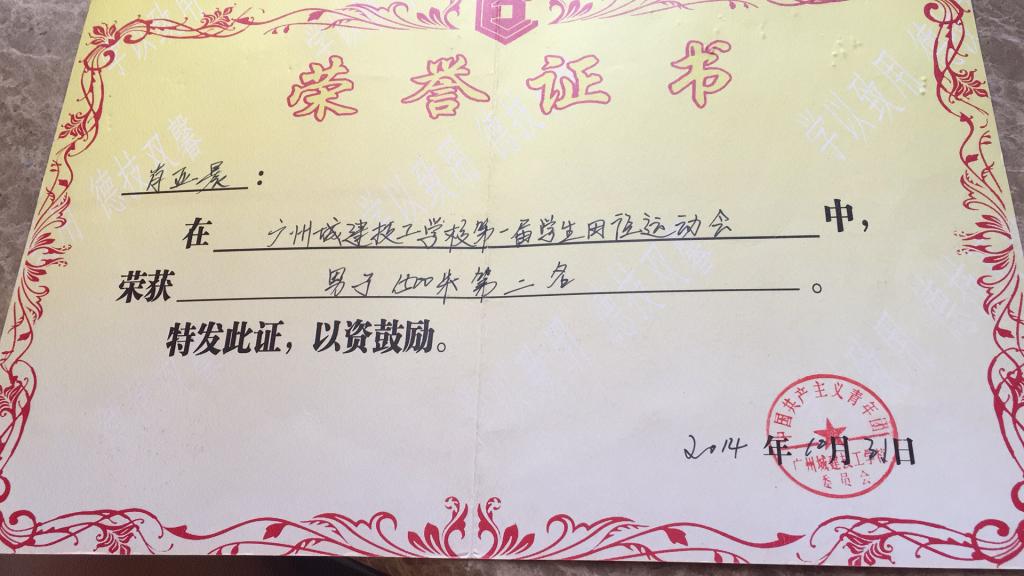 荣誉证书
肖亚晨：
在广州城建技工学校第一届学生田径运动会中，
荣获男子1500米第二名。
特发此证，以资鼓励。
中国共产主义青年团
广州城建技工学校
委员会
2014年10月31日
德技双馨
学以致用